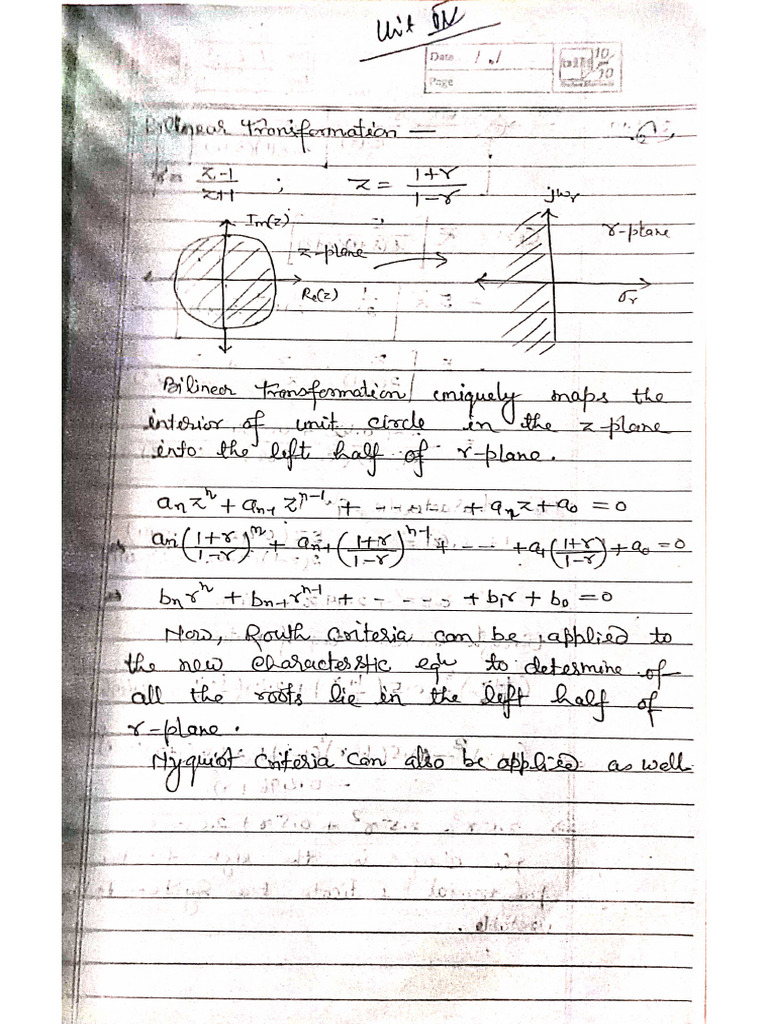 Unit IV
Date / . /
Page
10
10
Bilinear Transformation —
r = z-1/z+1 ; z = 1+r/1-r
Im(z)
z-plane
Re(z)
jωr
r-plane
σr
Bilinear transformation uniquely maps the
interior of unit circle in the z-plane
into the left half of r-plane.
aₙzⁿ + aₙ₋₁ zⁿ⁻¹ + ------ + aₙz + a₀ = 0
aₙ(1+r/1-r)ⁿ + aₙ₋₁(1+r/1-r)ⁿ⁻¹ + ---- + a₁(1+r/1-r) + a₀ = 0
bₙrⁿ + bₙ₋₁rⁿ⁻¹ + ----- + b₁r + b₀ = 0
Now, Routh Criteria can be applied to
the new characterstic eqn to determine of
all the roots lie in the left half of
r-plane.
Nyquist Criteria can also be applied as well